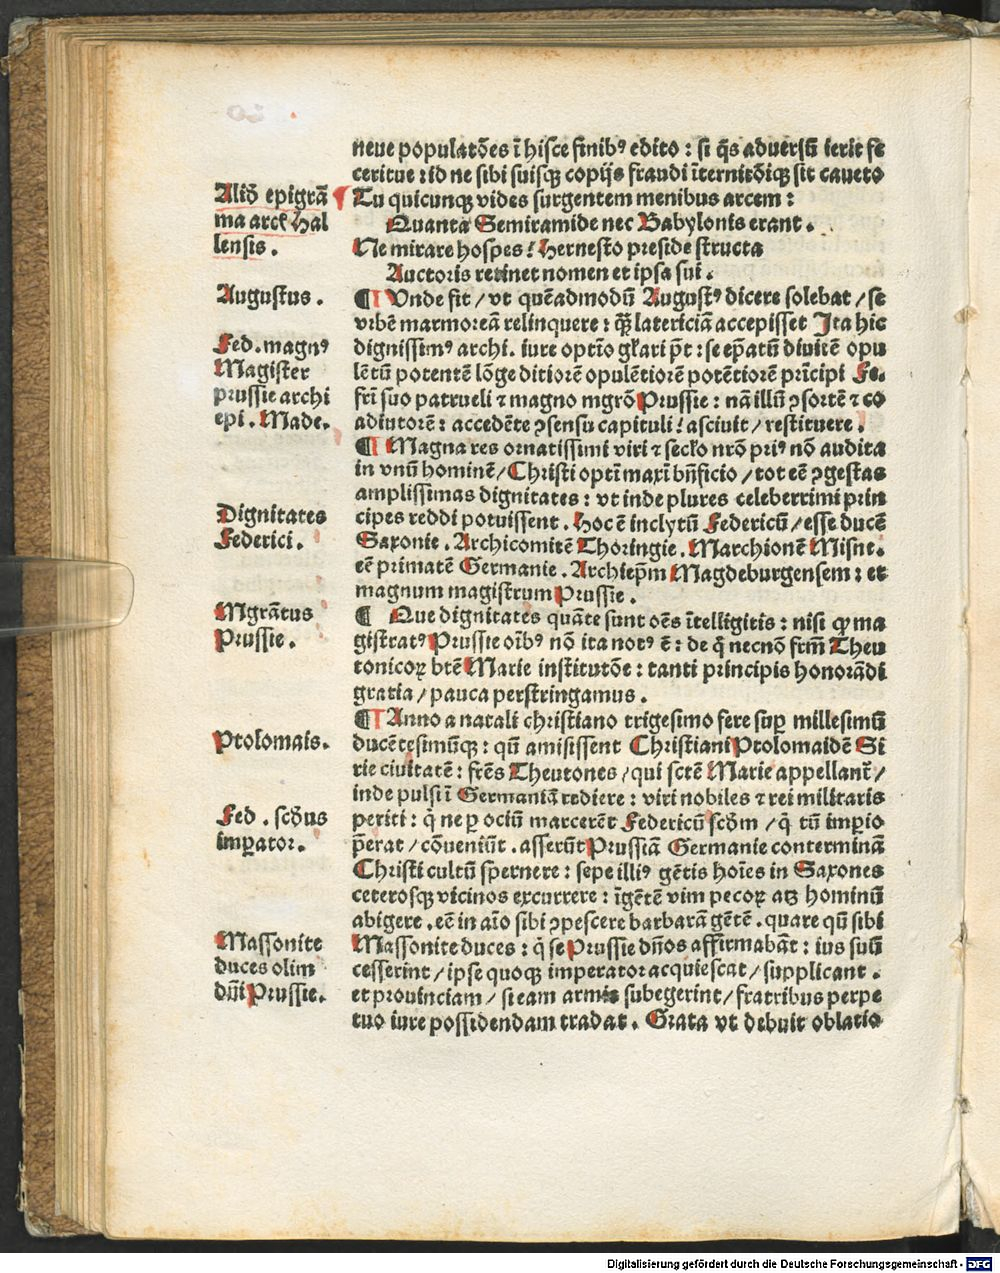 neue populatōes ī hisce finibꝰ edito : si q̄s aduersū ierit fe
ceritue : id ne sibi suisqꝫ copijs fraudi īternitōiqꝫ sit caueto
Aliđ epigrā
ma arcꝭ Hal
lensis .
Tu quicunqꝫ vides surgentem menibus arcem :
Quanta Semiramide nec Babylonis erant .
Ne mirare hospes ! Hernesto preside structa
Auctoris retinet nomen et ipsa sui .
Augustus .
¶ Vnde fit / vt quēadmodū Augustꝰ dicere solebat / se
vrbē marmoreā relinquere : quā latericiā accepisset Ita hic
Fed . magnꝰ
Magister
prussie archi
epi . Made .
dignissimꝰ archi . iure optīo gl̄ari p̄t : se ep̄atū diuitē opu
lētū potentē lōge ditiorē opulētiorē potētiorē prīcipi Fe .
fr̄i suo patrueli ⁊ magno mgrō Prussie : nā illū ꝯsortē ⁊ co
adiutorē : accedēte ꝯsensu capituli ! asciuit / restituere .
¶ Magna res ornatissimi viri ⁊ seclo nrō priꝰ nō audita
in vnū hominē / Christi optī maxī bn̄ficio / tot eē ꝯgestas
amplissimas dignitates : vt inde plures celeberrimi prin
Dignitates
Federici .
cipes reddi potuissent . Hoc ē inclytū Federicū / esse ducē
Saxonie . Archicomitē Thoringie . Marchionē Misne .
eē primatē Germanie . Archiep̄m Magdeburgensem : et
magnum magistrum Prussie .
Mgrātus
Prussie .
¶ Que dignitates quāte sunt oēs ītelligitis : nisi qꝙ ma
gistratꝰ Prussie oībꝰ nō ita notꝰ ē : de q̄ necnō frm̄ Theu
tonicoꝝ btē Marie institutōe : tanti principis honorādi
gratia / pauca perstringamus .
¶ Anno a natali christiano trigesimo fere suꝑ millesimū
Ptolomais .
ducētesimūqꝫ : qū amisissent Christiani Ptolomaidē Si
rie ciuitatē : frēs Theutones / qui sctē Marie appellant̄ /
inde pulsi ī Germaniā rediere : viri nobiles ⁊ rei militaris
Fed . scđus
imꝑator .
periti : q̄ ne ꝑ ociū marcerēt Federicū scđm / q̄ tū imꝑio
p̄erat / cōueniūt . asserūt Prussiā Germanie conterminā
Christi cultū spernere : sepe illiꝰ gētis hoīes in Saxones
ceterosqꝫ vicinos excurrere : īgētē vim pecoꝝ atqꝫ hominū
abigere . eē in aīo sibi ꝯpescere barbarā gētē . quare qū sibi
Massonite
duces olim
dn̄i Prussie .
Massonite duces : q̄ se Prussie dn̄os affirmabāt : ius suū
cesserint / ipse quoqꝫ imperator acquiescat / supplicant .
et prouinciam / si eam armis subegerint / fratribus perpe
tuo iure possidendam tradat . Grata vt debuit oblatio
Digitalisierung gefördert durch die Deutsche Forschungsgemeinschaft - DFG